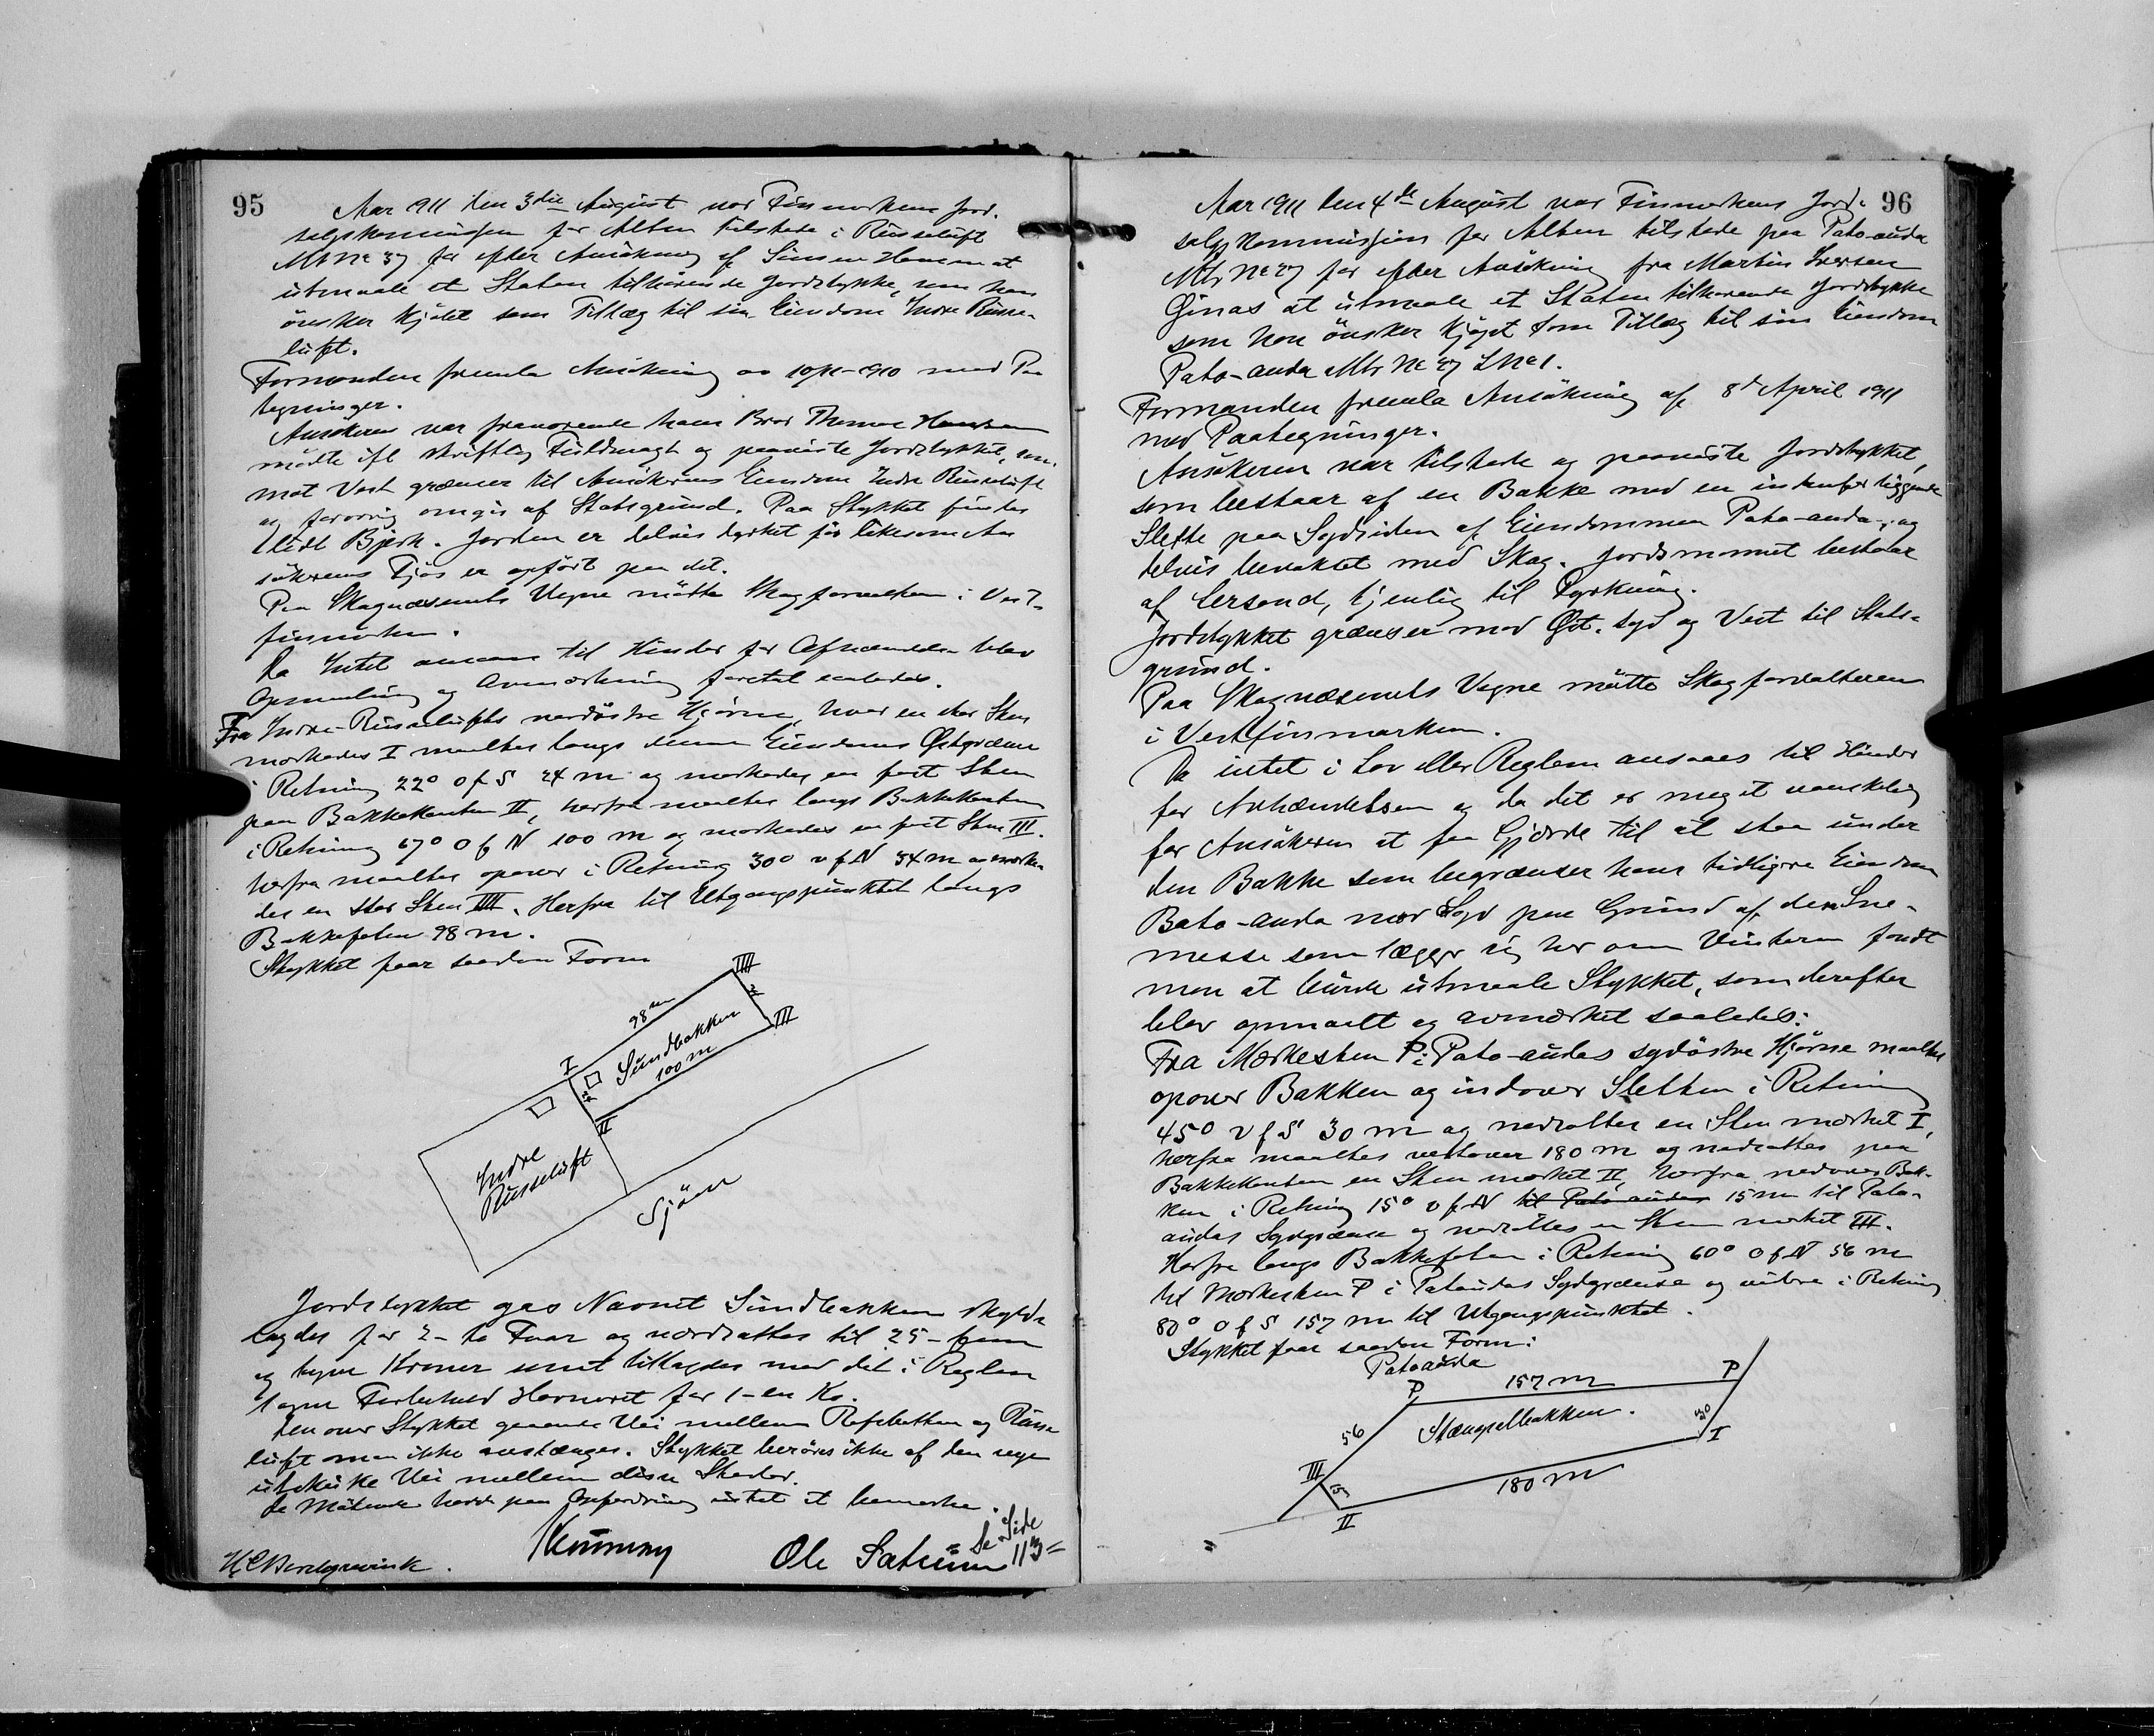 95
Aar 1911 den 3die August var Finmarkens Jord-
salgskommission for Alten tilstede i Russeluft
Mtr No 37 for efter Ansökning af Simen Hansen at
utmaale et Staten tilhörende Jordstykke, som han
önsker kjöbt som Tillæg til sin Eiendom Indre Russe-
luft.
Formanden fremla Ansökning av 10/11-1910 med Paa
tegninger.
Ansökeren var fraværende hans Bror Thomas Hansen
mödte ifl skriftlig Fuldmagt og paaviste Jordstykket, som
mot Vest grænser til Ansökerens Eiendom Indre Russeluft
og forövrig omgis af Statsgrund. Paa Stykket findes
lidt Bjerk. Jorden er delvis dyrket för likesom An
sökerens Fjös er opfört paa det.
Paa Skogvæsenets Vegne mötte Skogforvalteren i Vest-
finmarken.
Da Intet ansaaes til Hinder for Afhændelse blev
Opmaaling og Avmerkning foretat saaledes.
Fra Indre-Russelufts nordöstre Hjörne, hvor en stor Sten
merkedes I maaltes langs denne Eiendoms Östgrænse
i Retning 22° O f S 24 m og merkedes en fast Sten
paa Bakkekanten II, herfra maaltes langs Bakkekanten
i Retning 67° O f N 100 m og merkedes en fast Sten III.
herfra maaltes opover i Retning 30° v f N 34 m og merke
des en stor Sten IIII. Herfra til Utgangspunktet langs
Bakkefoten 98 m.
Stykket faar saadan Form
IIII
98 m
34
III
Sundbakken
100 m
I
24
II
Indre
Russeluft
Sjöen
Jordstykket gas Navnet Sundbakken skyld-
lagdes for 2- to Fuar og værdsattes til 25- fem
og tyve Kroner samt tillagdes med det i Reglem
1 agne Forbehold Havneret for 1- en Ko.
Den over Stykket gaaende Vei mellem Rafsbotten og Russe
luft maa ikke avstænges. Stykket beröres ikke af den regu
utstukne Vei mellem disse Steder.
De Mötende havde paa Opfordring intet at bemerke.
Kummeny
H C Borchgrevink.
Ole Sætrum
= Se Side
113 =
96
Aar 1911 den 4de August var Finmarkens Jord-
salgskommission for Alten tilstede paa Pato-anda
Mtr No 27 for efter Ansökning fra Martin Iversen
Ginas at utmaale et Staten tilhörende Jordstykke
som han önsker kjöpt som Tillæg til sin Eiendom
Pato-anda Mtr No 27 LNo 1.
Formanden fremla Ansökning af 8de April 1911
med Paategninger.
Ansökeren var tilstede og paaviste Jordstykket,
som bestaar af en Bakke med en indenfor liggende
Slette paa Sydsiden af Eiendommen Pato-anda, og
delvis bevokset med Skog. Jordsmonnet bestaar
af Lersand, tjenlig til Dyrkning.
Jordstykket grænser mod Öst, Syd og Vest til Stats-
grund.
Paa Skogvæsenets Vegne mötte Skogforvalteren
i Vestfinmarken.
Da intet i Lov eller Reglem ansaaes til Hinder
for Avhændelsen og da det er meget vanskelig
for Ansökeren at faa Gjærde til at staa under
den Bakke som begrænser hans tidligere Eiendom
Bato-anda mod Syd paa Grund af den Sne-
masse som lægger sig her om Vinteren fandt
man at burde utmaale Stykket, som derefter
blev opmaalt og avmerket saaledes:
Fra Merkesten P i Pato-andas sydöstre Hjörne maaltes
opover Bakken og indover Sletten i Retning
45° v f S 30 m og nedsattes en Sten merket I,
herfra maaltes vestover 180 m og nedsattes paa
Bakkekanten en Sten merket II, herfra nedover Bak-
ken i Retning 15° v f N til Pato-andas 15 m til Pato-
andas Sydgrænse og nedsattes en Sten merket III.
Herfra langs Bakkefoten i Retning 60° O f N 56 m
til Merkesten P i Patoandas Sydgrænse og videre i Retning
80° O f S 157 m til Utgangspunktet.
Stykket faar saadan Form:
Patoanda
P
157 m
P
56
Stængselbakken.
30
I
III
15
180 m
II